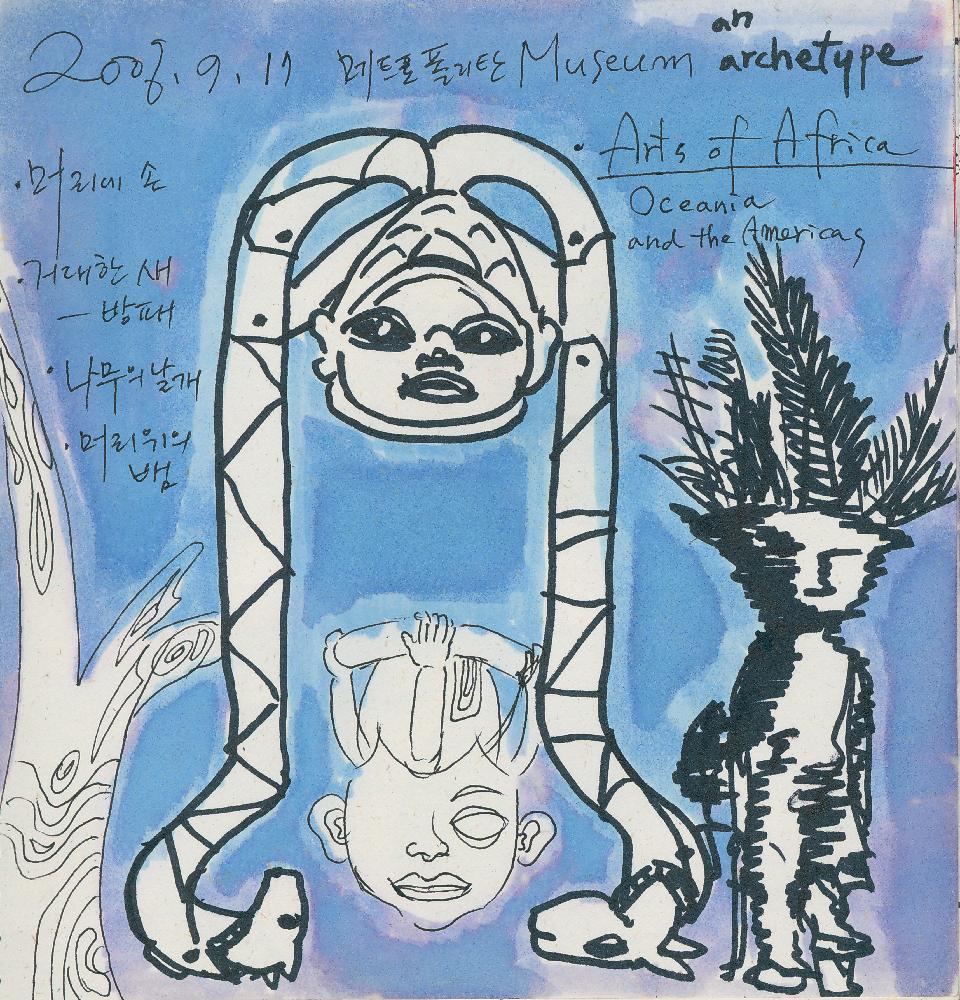 2008. 9. 17 메트로폴리탄 Museum an archetype
· Arts of Africa
Oceania
and the Americas
· 머리에 손
· 거대한 새
— 방패
· 나무의 날개
· 머리위의
뱀